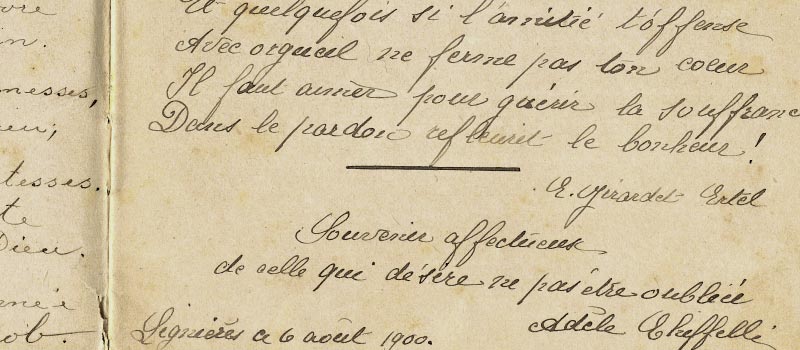 ore
Et quelquefois si l'amitié t'offense
n.
Avec orgueil ne ferme pas ton coeur
messes,
Il faut aimer pour guérir la souffranc
eu;
Dans le pardon refleurit le bonheur!
tesses.
E. Girardet Ertel
te
Souvenir affectueux
Dieu.
de celle qui désire ne pas être oubliée
née
Adèle
ob.
Lignières ce 6 août 1900.